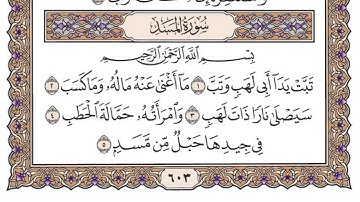 سُورَةُ المَسَدِ
بِسْمِ اللَّهِ الرَّحْمَٰنِ الرَّحِيمِ
تَبَّتْ يَدَآ أَبِي لَهَبٍ وَتَبَّ ١ مَآ أَغْنَىٰ عَنْهُ مَالُهُۥ وَمَا كَسَبَ ٢
سَيَصْلَىٰ نَارًا ذَاتَ لَهَبٍ ٣ وَٱمْرَأَتُهُۥ حَمَّالَةَ ٱلْحَطَبِ ٤
فِي جِيدِهَا حَبْلٌ مِّن مَّسَدٍۭ ٥
٦٠٣